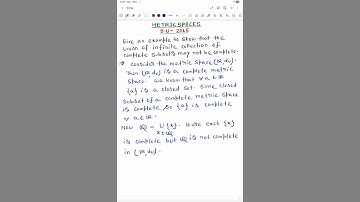 METRIC SPACES
D.U - 2015
Give an example to show that the
union of infinite collection of
complete subsets may not be complete.
⇒ Consider the metric space (ℝ, du).
Then (ℝ, du) is a complete metric
space. We know that ∀ a∈ℝ
{a} is a closed set. Since closed
subset of a complete metric space
is complete so {a} is complete
∀ a∈ℝ.
Now ℚ = ∪{x}. Here each {x}
x∈ℚ
is complete but ℚ is not complete
in (ℝ, du).